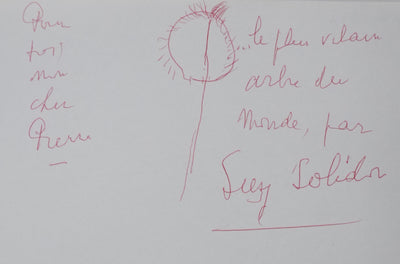 Pour
toi
mon
cher
Pierre
...le plus vilain
arbre du
Monde, par
Suzy Solidor